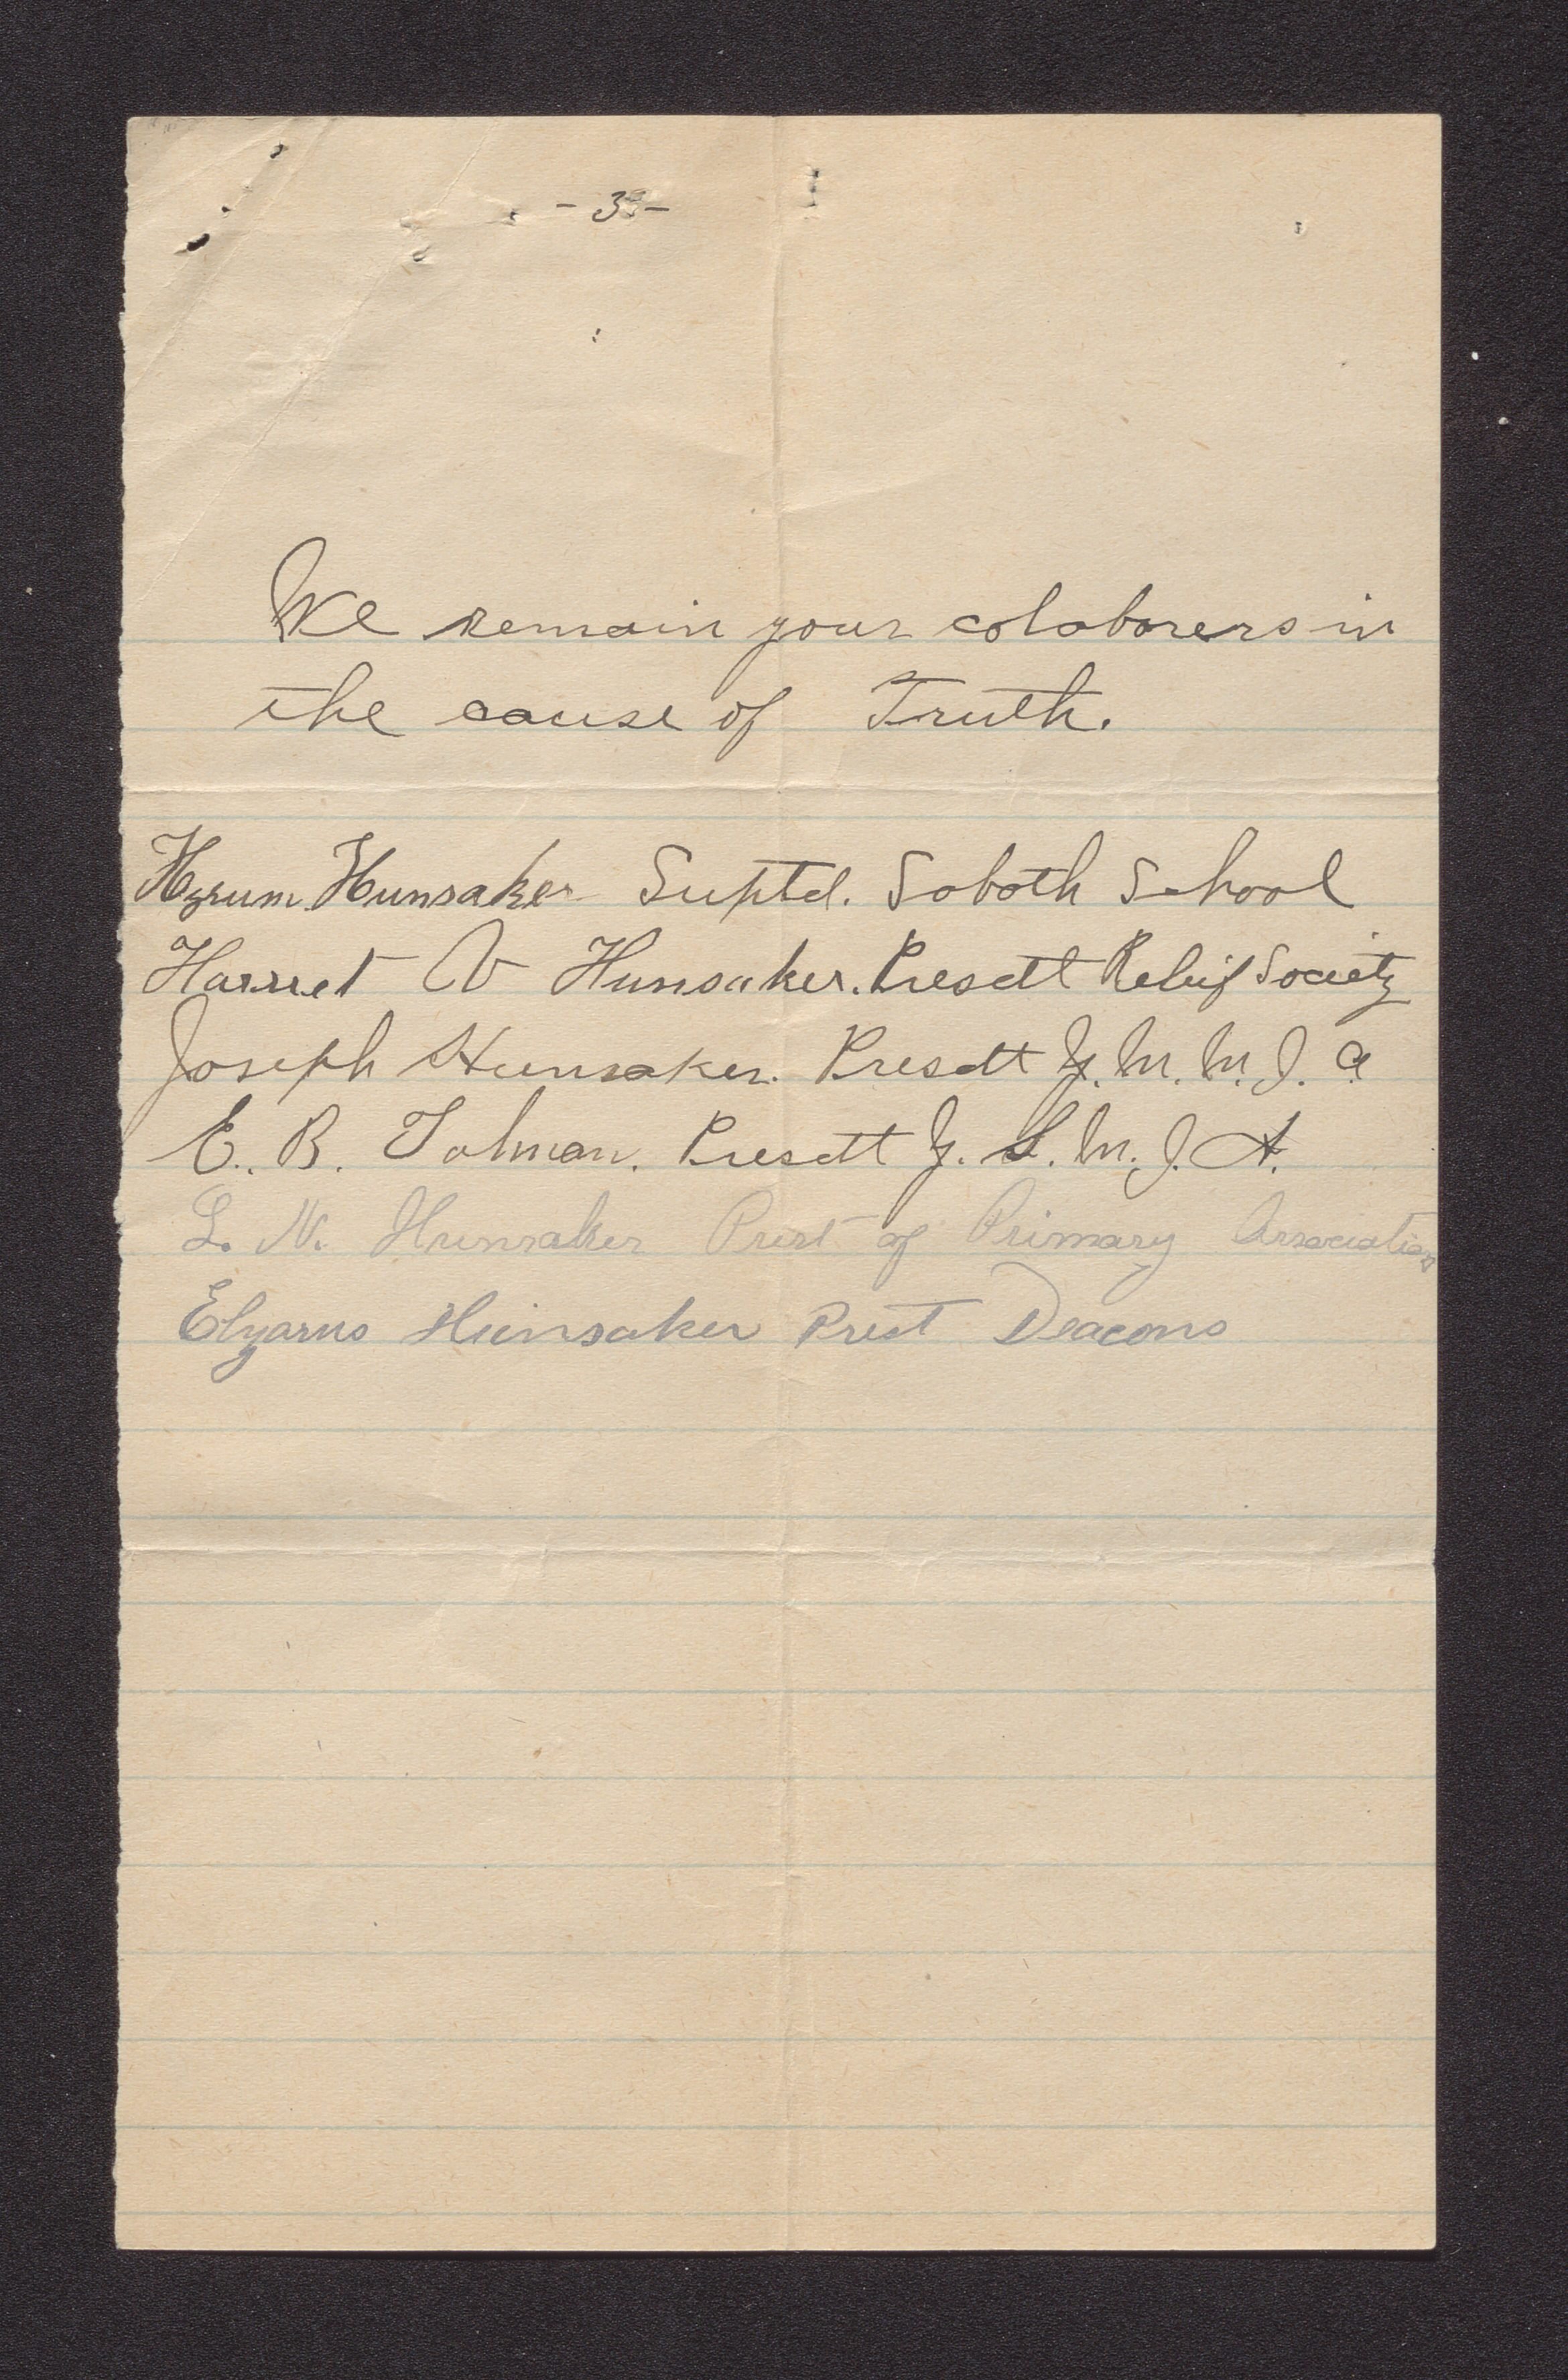 - 3 -
We remain your colaborers in
the cause of Truth.
Hyrum Hunsaker Suptd. Saboth School
Harriet V Hunsaker. Presdt Releif Society
Joseph Hunsaker. Presdt Y. M. M. I. A
E. B. Tolman. Presdt Y. L. M. I. A.
L. N. Hunsaker Prest of Primary Association
Elzarus Hunsaker Prest Deacons